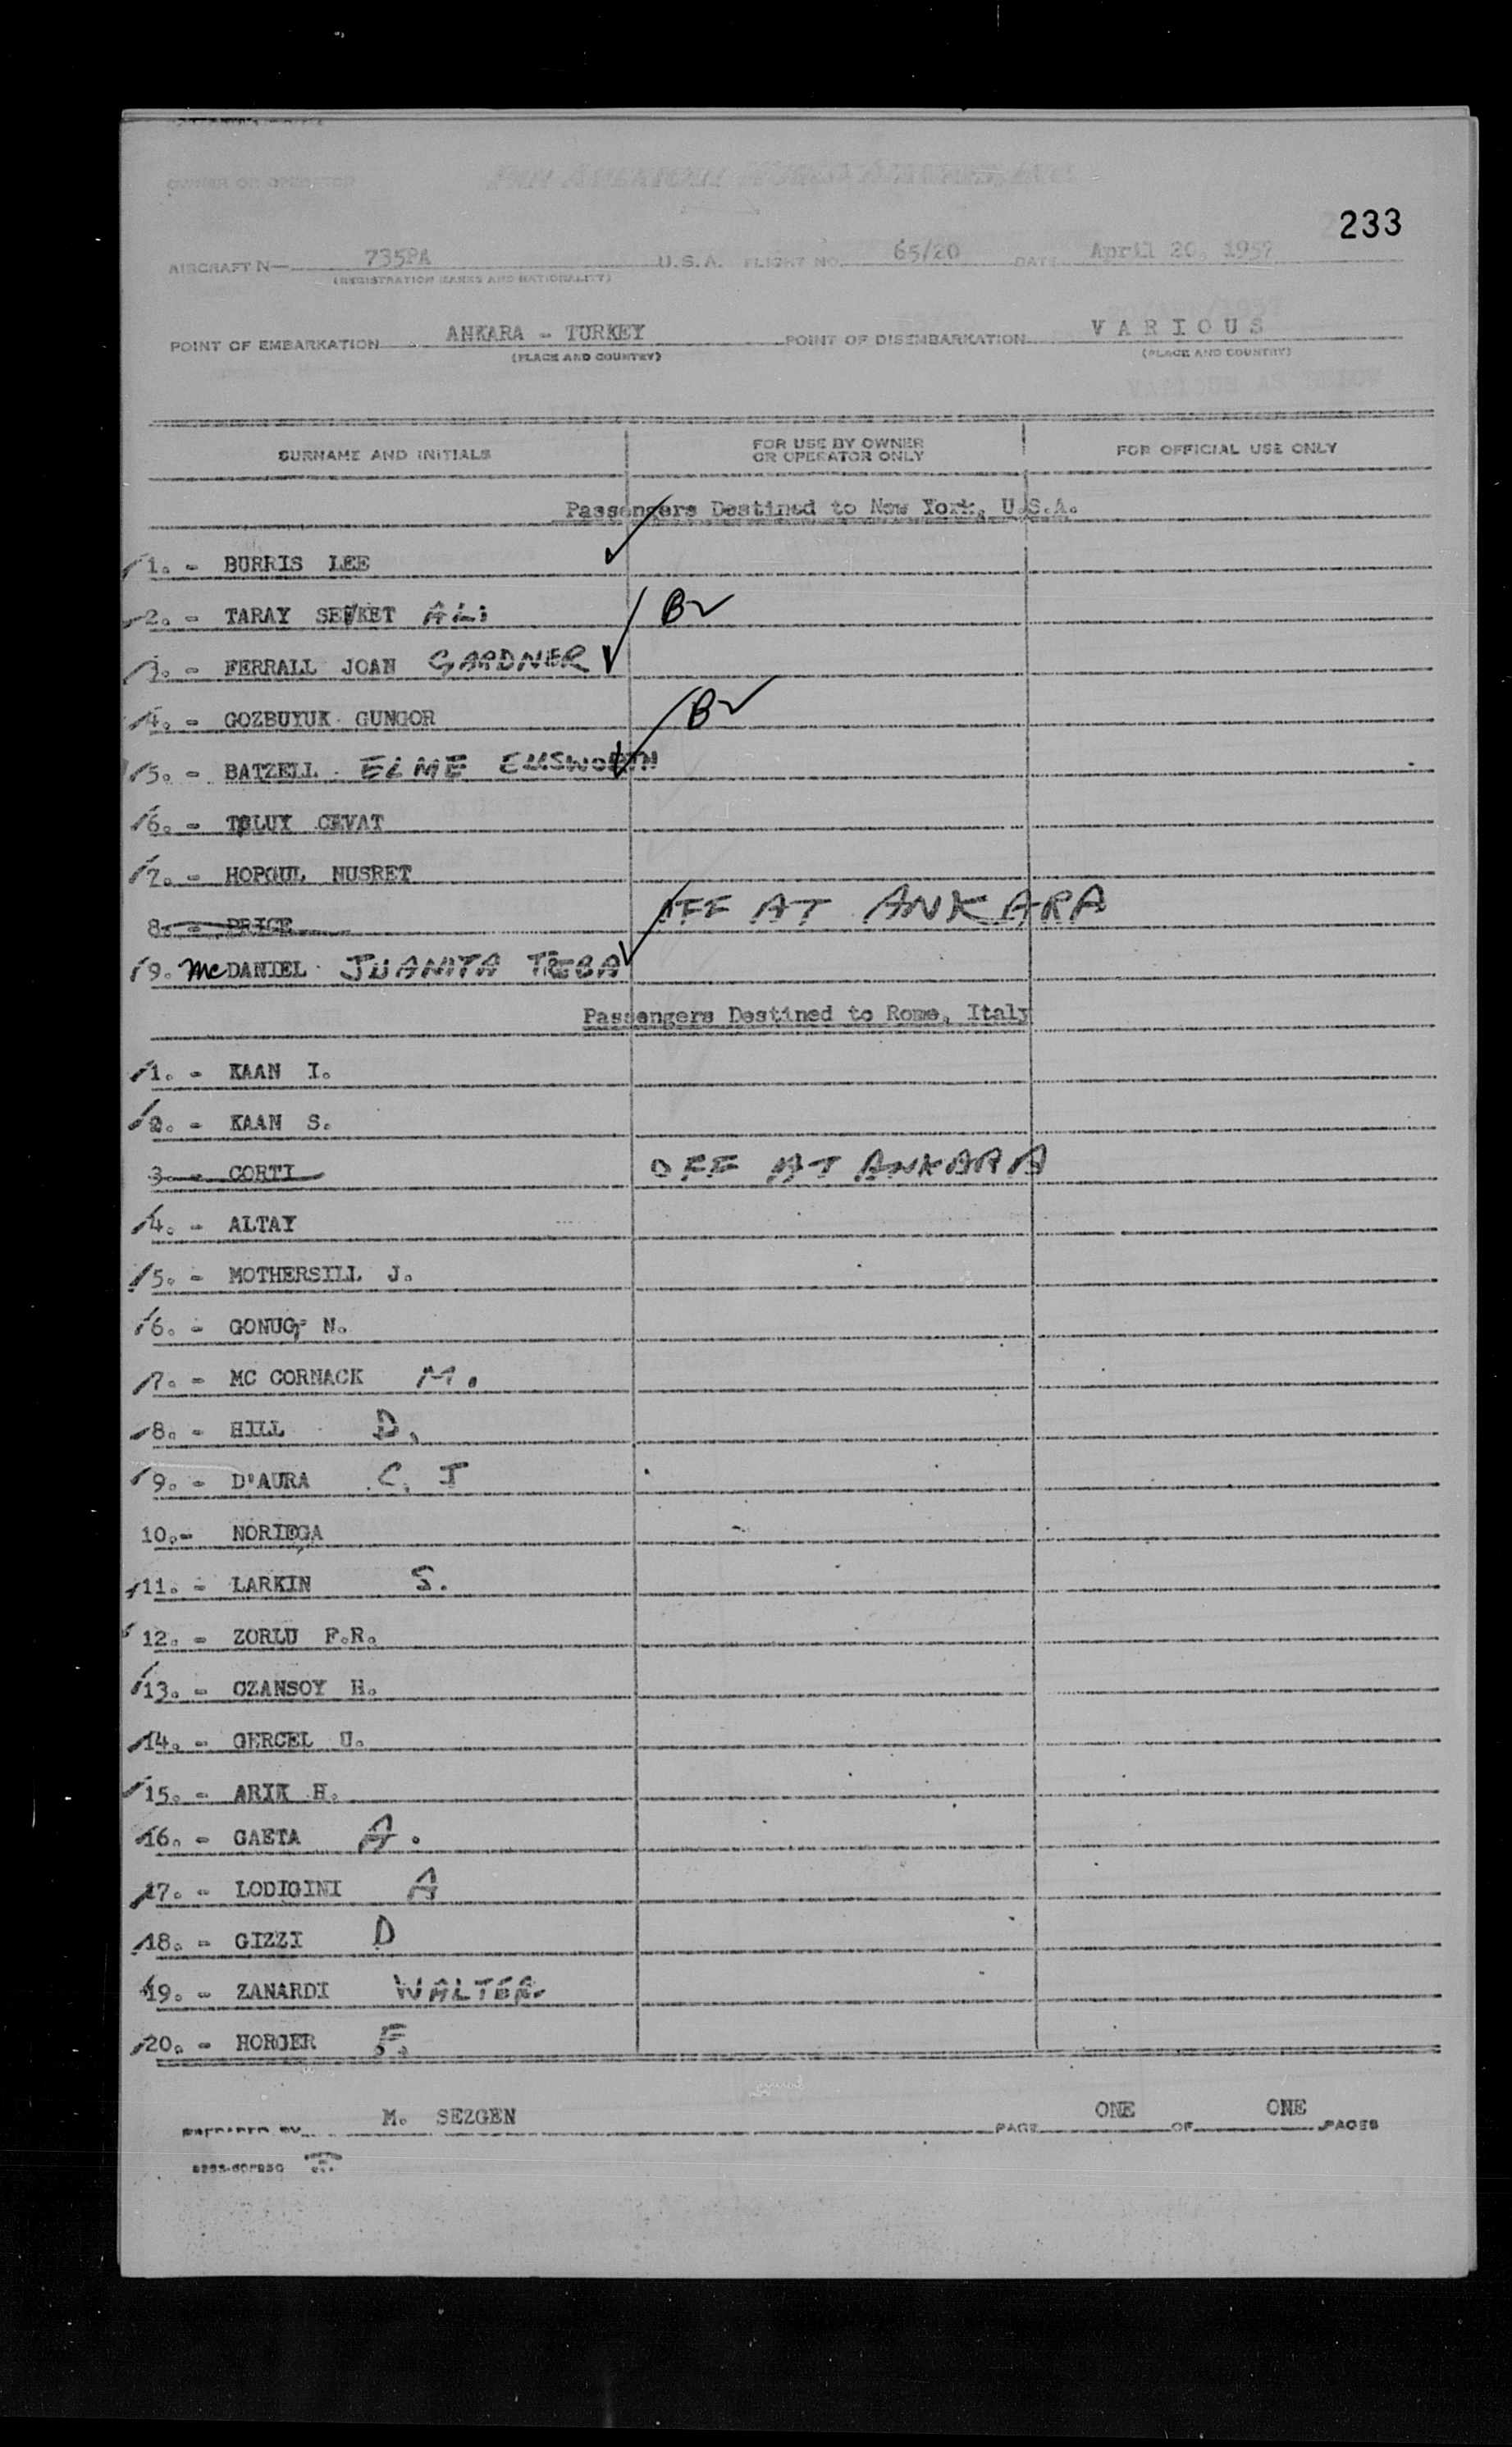 OWNER OR OPERATOR PAN AMERICAN WORLD AIRWAYS, INC.
233
AIRCRAFT N— 735PA U.S.A. FLIGHT NO. 65/20 DATE April 20, 1957
(REGISTRATION MARKS AND NATIONALITY)
POINT OF EMBARKATION ANKARA - TURKEY POINT OF DISEMBARKATION VARIOUS
(PLACE AND COUNTRY) (PLACE AND COUNTRY)
SURNAME AND INITIALS FOR USE BY OWNER OR OPERATOR ONLY FOR OFFICIAL USE ONLY
Passengers Destined to New York, U.S.A.
1. - BURRIS LEE
2. - TARAY SEVKET ALI B
3. - FERRALL JOAN GARDNER
4. - GOZBUYUK GUNGOR B
5. - BATZELL ELME ELLSWORTH
6. - TOLUY CEVAT
7. - HOPGUL NUSRET
8. - PRICE OFF AT ANKARA
9. McDANIEL JUANITA TREBA
Passengers Destined to Rome, Italy
1. - KAAN I.
2. - KAAN S.
3. - CORTI OFF AT ANKARA
4. - ALTAY
5. - MOTHERSILL J.
6. - N.
7. - MC CORNACK M.
8. - HILL D.
9. - D'AURA C. J
10.- NORIEGA
11. - LARKIN S.
12. - ZORLU F.R.
13. - OZANSOY H.
14. - GERCEL U.
15. - ARIK H.
16. - GAETA A.
17. - LODIGINI A
18. - GIZZI D
19. - ZANARDI WALTER.
20. - HORGER F.
PREPARED BY M. SEZGEN PAGE ONE OF ONE PAGES